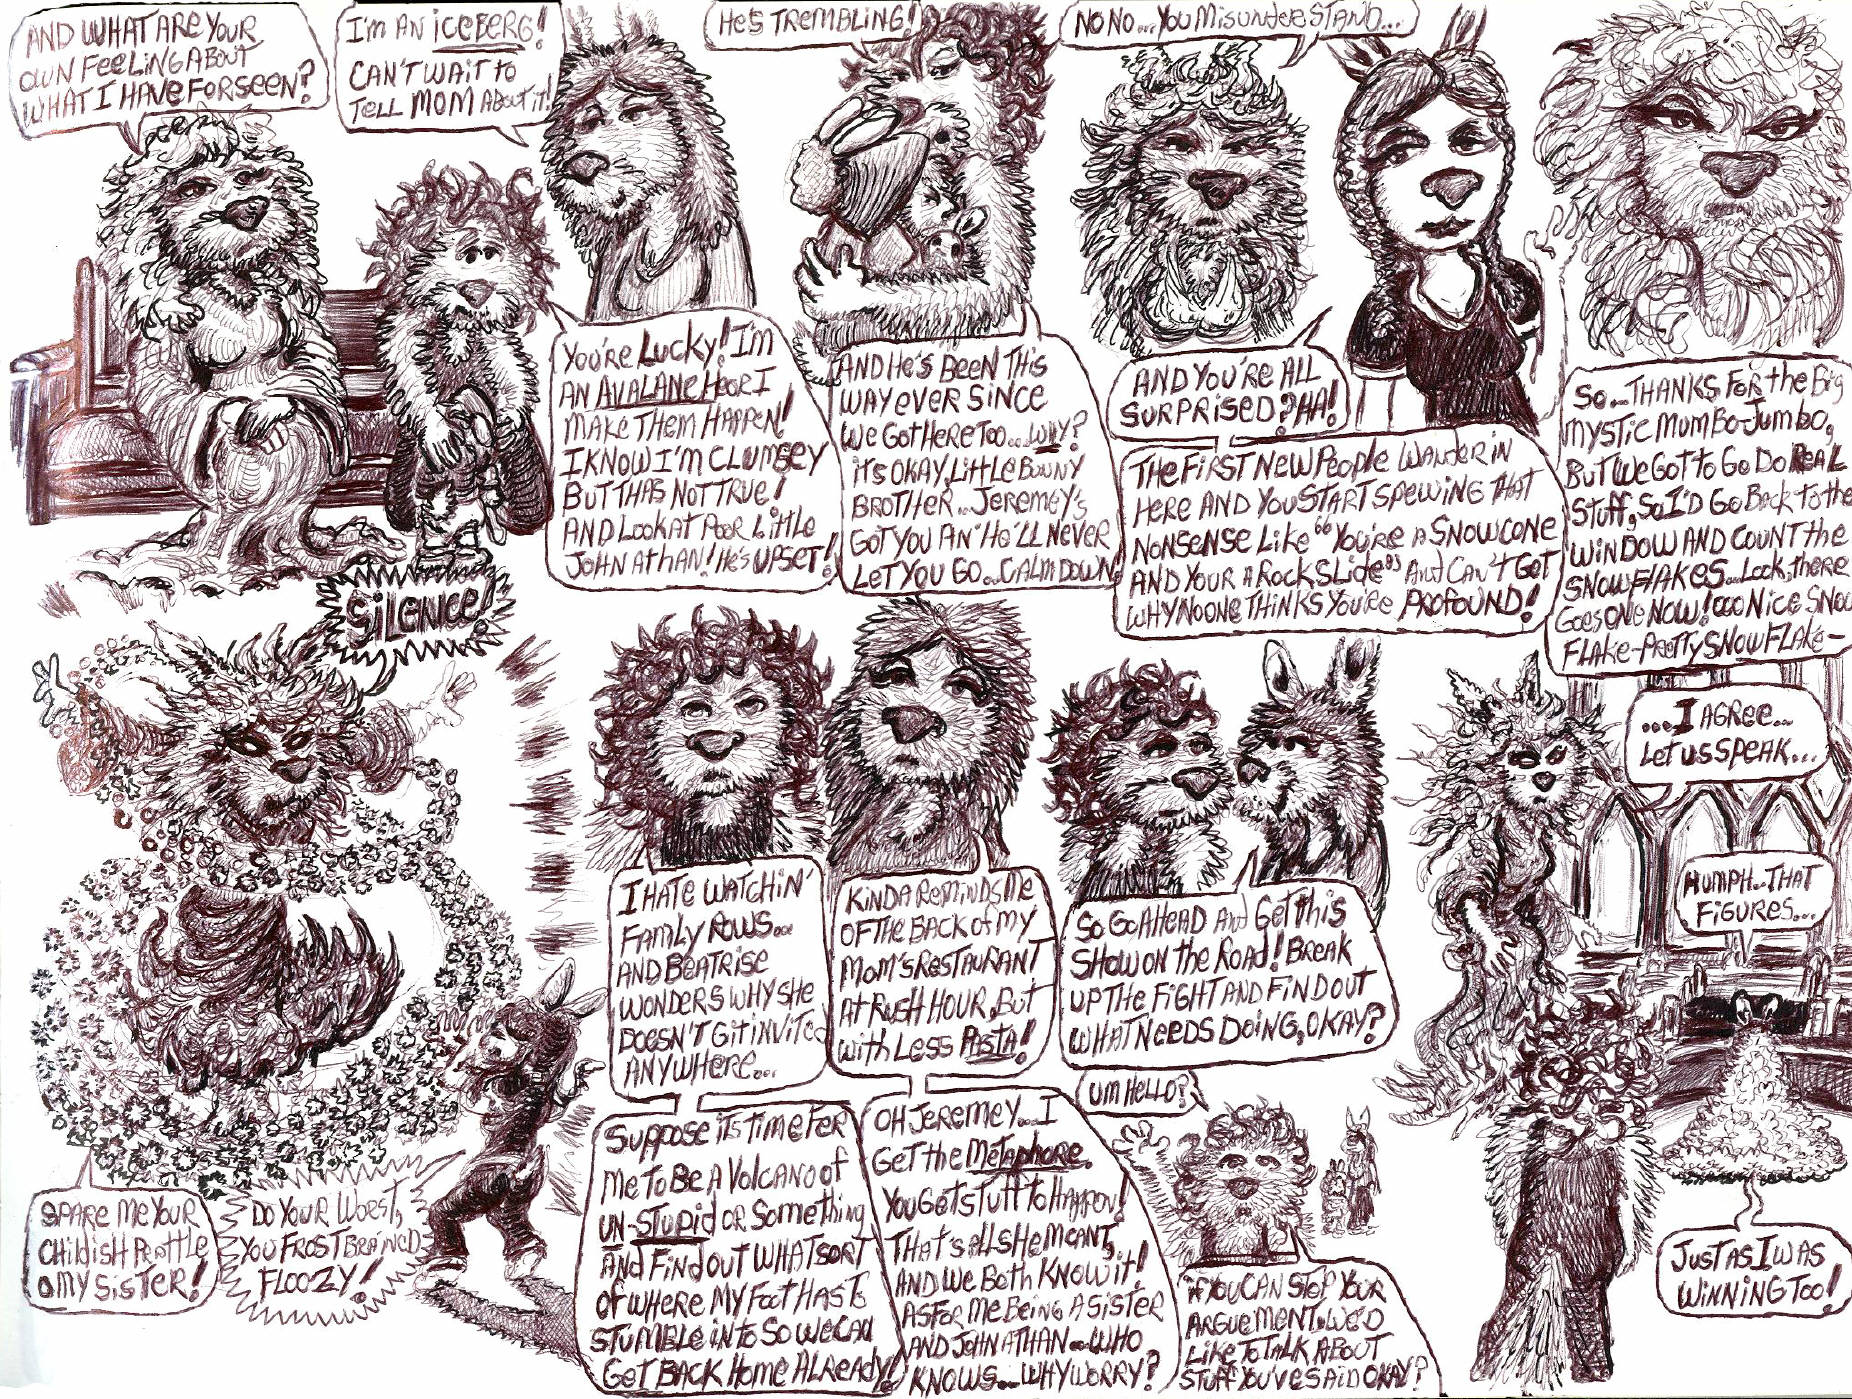 AND WHAT ARE YOUR
OWN FEELING ABOUT
WHAT I HAVE FORSEEN?
I'M AN ICEBERG!
CAN'T WAIT to
TELL MOM ABOUT it!
YOU'RE LUCKY! I'M
AN AVALANCHE OR I
MAKE THEM HAPPEN!
I KNOW I'M CLUMSEY
BUT THAS NOT TRUE!
AND LOOK AT POOR LITTLE
JOHNATHAN! HE'S UPSET!
HE'S TREMBLING!
AND HE'S BEEN THIS
WAY EVER SINCE
WE GOT HERE TOO... WHY?
IT'S OKAY LITTLE BUNNY
BROTHER... JEREMEY'S
GOT YOU AN' HE'LL NEVER
LET YOU GO... CALM DOWN
NO NO... YOU MISUNDERSTAND...
AND YOU'RE ALL
SURPRISED? HA!
THE FIRST NEW PEOPLE WANDER IN
HERE AND YOU START SPEWING THAT
NONSENSE LIKE "YOU'RE A SNOWCONE
AND YOUR A ROCKSLIDE" AND CAN'T GET
WHY NOONE THINKS YOU'RE PROFOUND!
SO... THANKS FOR the BIG
MYSTIC MUMBO-JUMBO,
BUT WE GOT TO GO DO REAL
STUFF, SO I'D GO BACK TO the
WINDOW AND COUNT the
SNOWFLAKES... LOOK, there
GOES ONE NOW! NICE SNOW
FLAKE-PRETTY SNOWFLAKE-
SILENCE!
SPARE ME YOUR
CHILDISH PRATTLE
O MY SISTER!
DO YOUR WORST,
YOU FROST BRAINED
FLOOZY!
I HATE WATCHIN'
FAMILY ROWS...
AND BEATRISE
WONDERS WHY SHE
DOESN'T GIT INVITED
ANYWHERE...
SUPPOSE IT'S TIME FER
ME TO BE A VOLCANO OF
UN-STUPID OR SOMETHING
AND FIND OUT WHAT SORT
OF WHERE MY FOOT HAS TO
STUMBLE INTO SO WE CAN
GET BACK HOME ALREADY!
KINDA REMINDS ME
OF THE BACK OF MY
MOM'S RESTAURANT
AT RUSH HOUR, BUT
WITH LESS PASTA!
OH JEREMEY... I
GET the METAPHORE.
YOU GET STUFF TO HAPPEN!
THAT'S ALL SHE MEANT,
AND WE BOTH KNOW IT!
AS FOR ME BEING A SISTER
AND JOHNATHAN... WHO
KNOWS... WHY WORRY?
SO GO AHEAD AND GET THIS
SHOW ON THE ROAD! BREAK
UP THE FIGHT AND FIND OUT
WHAT NEEDS DOING, OKAY?
UM HELLO?
IF YOU CAN STOP YOUR
ARGUEMENT, WE'D
LIKE TO TALK ABOUT
STUFF YOU'VE SAID OKAY?
...I AGREE...
LET US SPEAK...
HUMPH... THAT
FIGURES...
JUST AS I WAS
WINNING TOO!